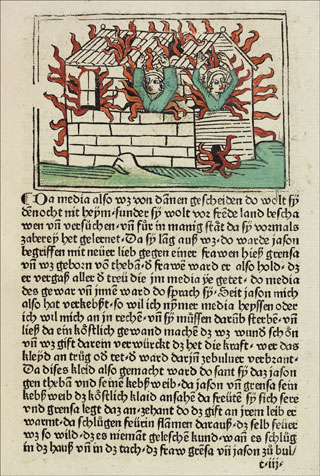 Da media also wz von dānen gescheiden do wolt sÿ
dēnocht nit heÿm · sunder sÿ wolt vor frēde land bescha
wen vñ versůchen · vñ fůr in manig stāt da sÿ vormals
zaberey het gelernet · Da sÿ lāg auß wz · do warde jason
begriffen mit neüer lieb gegen einer frawen hieß grensa
vñ wz geborn võ theban · d̉ frawē ward er also hold · dz
er vergaß aller d̉ treü die jm media ÿe getet · do media
des gewar vñ jnnē ward do sprach sÿ · Seit jason mich
also hat verkebst · so wil ich nÿmer media heyssen oder
ich wil mich an jn rechē · vñ sÿ müssen darūb sterbē · vñ
ließ da ein köstlich gewand machē dz wz wund schön
vñ wz gift darein verwürckt dz het die kraft · wer das
kleÿd an trůg od̉ tet · d̉ ward darjn zebuluer verbrant ·
Da dises kleid also gemacht ward do sant sÿ daz jason
gen theban vnd seinē kebß weib · da jason vñ grensa sein
kebß weib dz köstlich klaid ansahē da freütē sÿ sich sere
vnd grensa legt daz an · zehant do dz gift an jrem leib er
warmt · da schlůgen feürin flamen darauß · dz selb feüer
wz so wild · dz es niemāt geleschē kund · wañ es schlůg
in dz hauß vñ in dz tach · dz fraw greēsa vñ jason zů bul/
c · iij ·